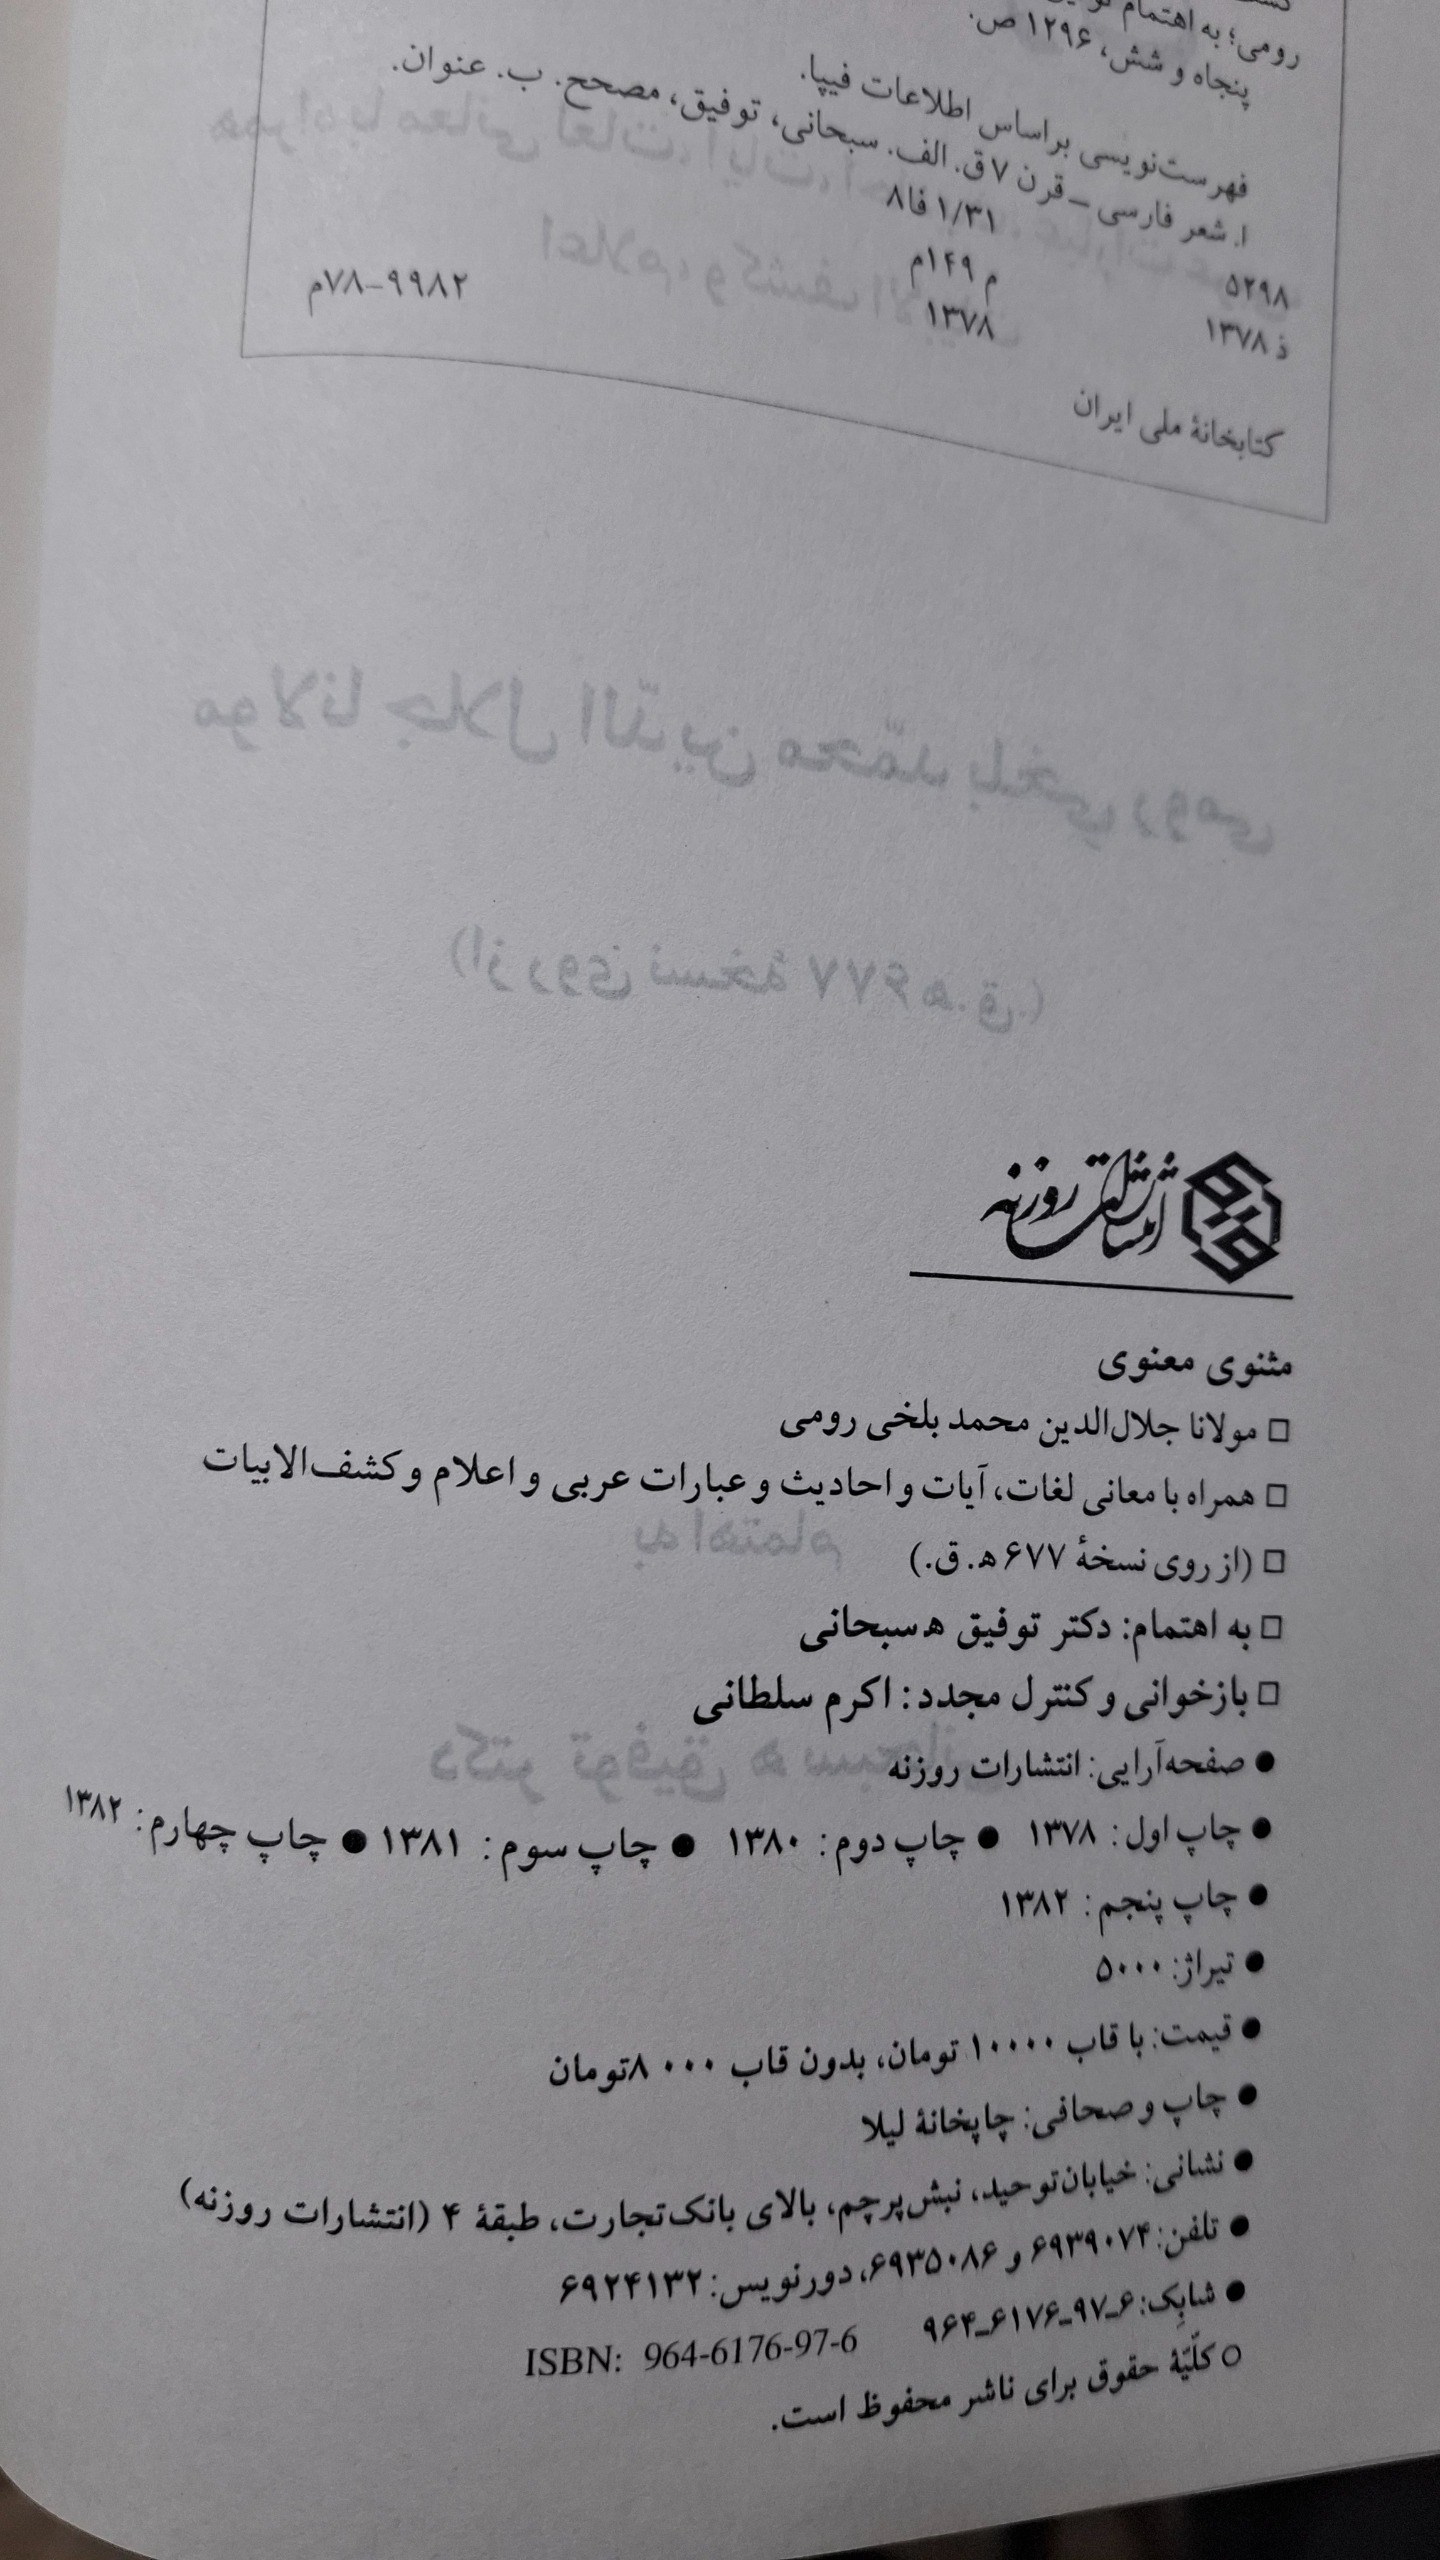 رومی؛ به اهتمام
پنجاه و شش، ۱۲۹۶ ص.
فهرست‌نویسی براساس اطلاعات فیپا.
۱. شعر فارسی – قرن ۷ق. الف. سبحانی، توفیق، مصحح. ب. عنوان.
۱/۳۱ فا۸
۵۲۹۸ م ۱۴۹م ۹۹۸۲–۷۸م
ذ ۱۳۷۸ ۱۳۷۸
کتابخانهٔ ملی ایران
انتشارات روزنه
مثنوی معنوی
□ مولانا جلال‌الدین محمد بلخی رومی
□ همراه با معانی لغات، آیات و احادیث و عبارات عربی و اعلام و کشف‌الابیات
□ (از روی نسخهٔ ۶۷۷ ه‍. ق.)
□ به اهتمام: دکتر توفیق ه‍ سبحانی
□ بازخوانی و کنترل مجدد: اکرم سلطانی
● صفحه‌آرایی: انتشارات روزنه
● چاپ اول: ۱۳۷۸ ● چاپ دوم: ۱۳۸۰ ● چاپ سوم: ۱۳۸۱ ● چاپ چهارم: ۱۳۸۲
● چاپ پنجم: ۱۳۸۲
● تیراژ: ۵۰۰۰
● قیمت: با قاب ۱۰۰۰۰ تومان، بدون قاب ۸۰۰۰ تومان
● چاپ و صحافی: چاپخانهٔ لیلا
● نشانی: خیابان‌توحید، نبش‌پرچم، بالای بانک‌تجارت، طبقهٔ ۴ (انتشارات روزنه)
● تلفن: ۶۹۳۹۰۷۴ و ۶۹۳۵۰۸۶، دورنویس: ۶۹۲۴۱۳۲
● شابِک: ۶ـ۹۷ـ۶۱۷۶ـ۹۶۴ ISBN: 964-6176-97-6
○ کلّیّهٔ حقوق برای ناشر محفوظ است.